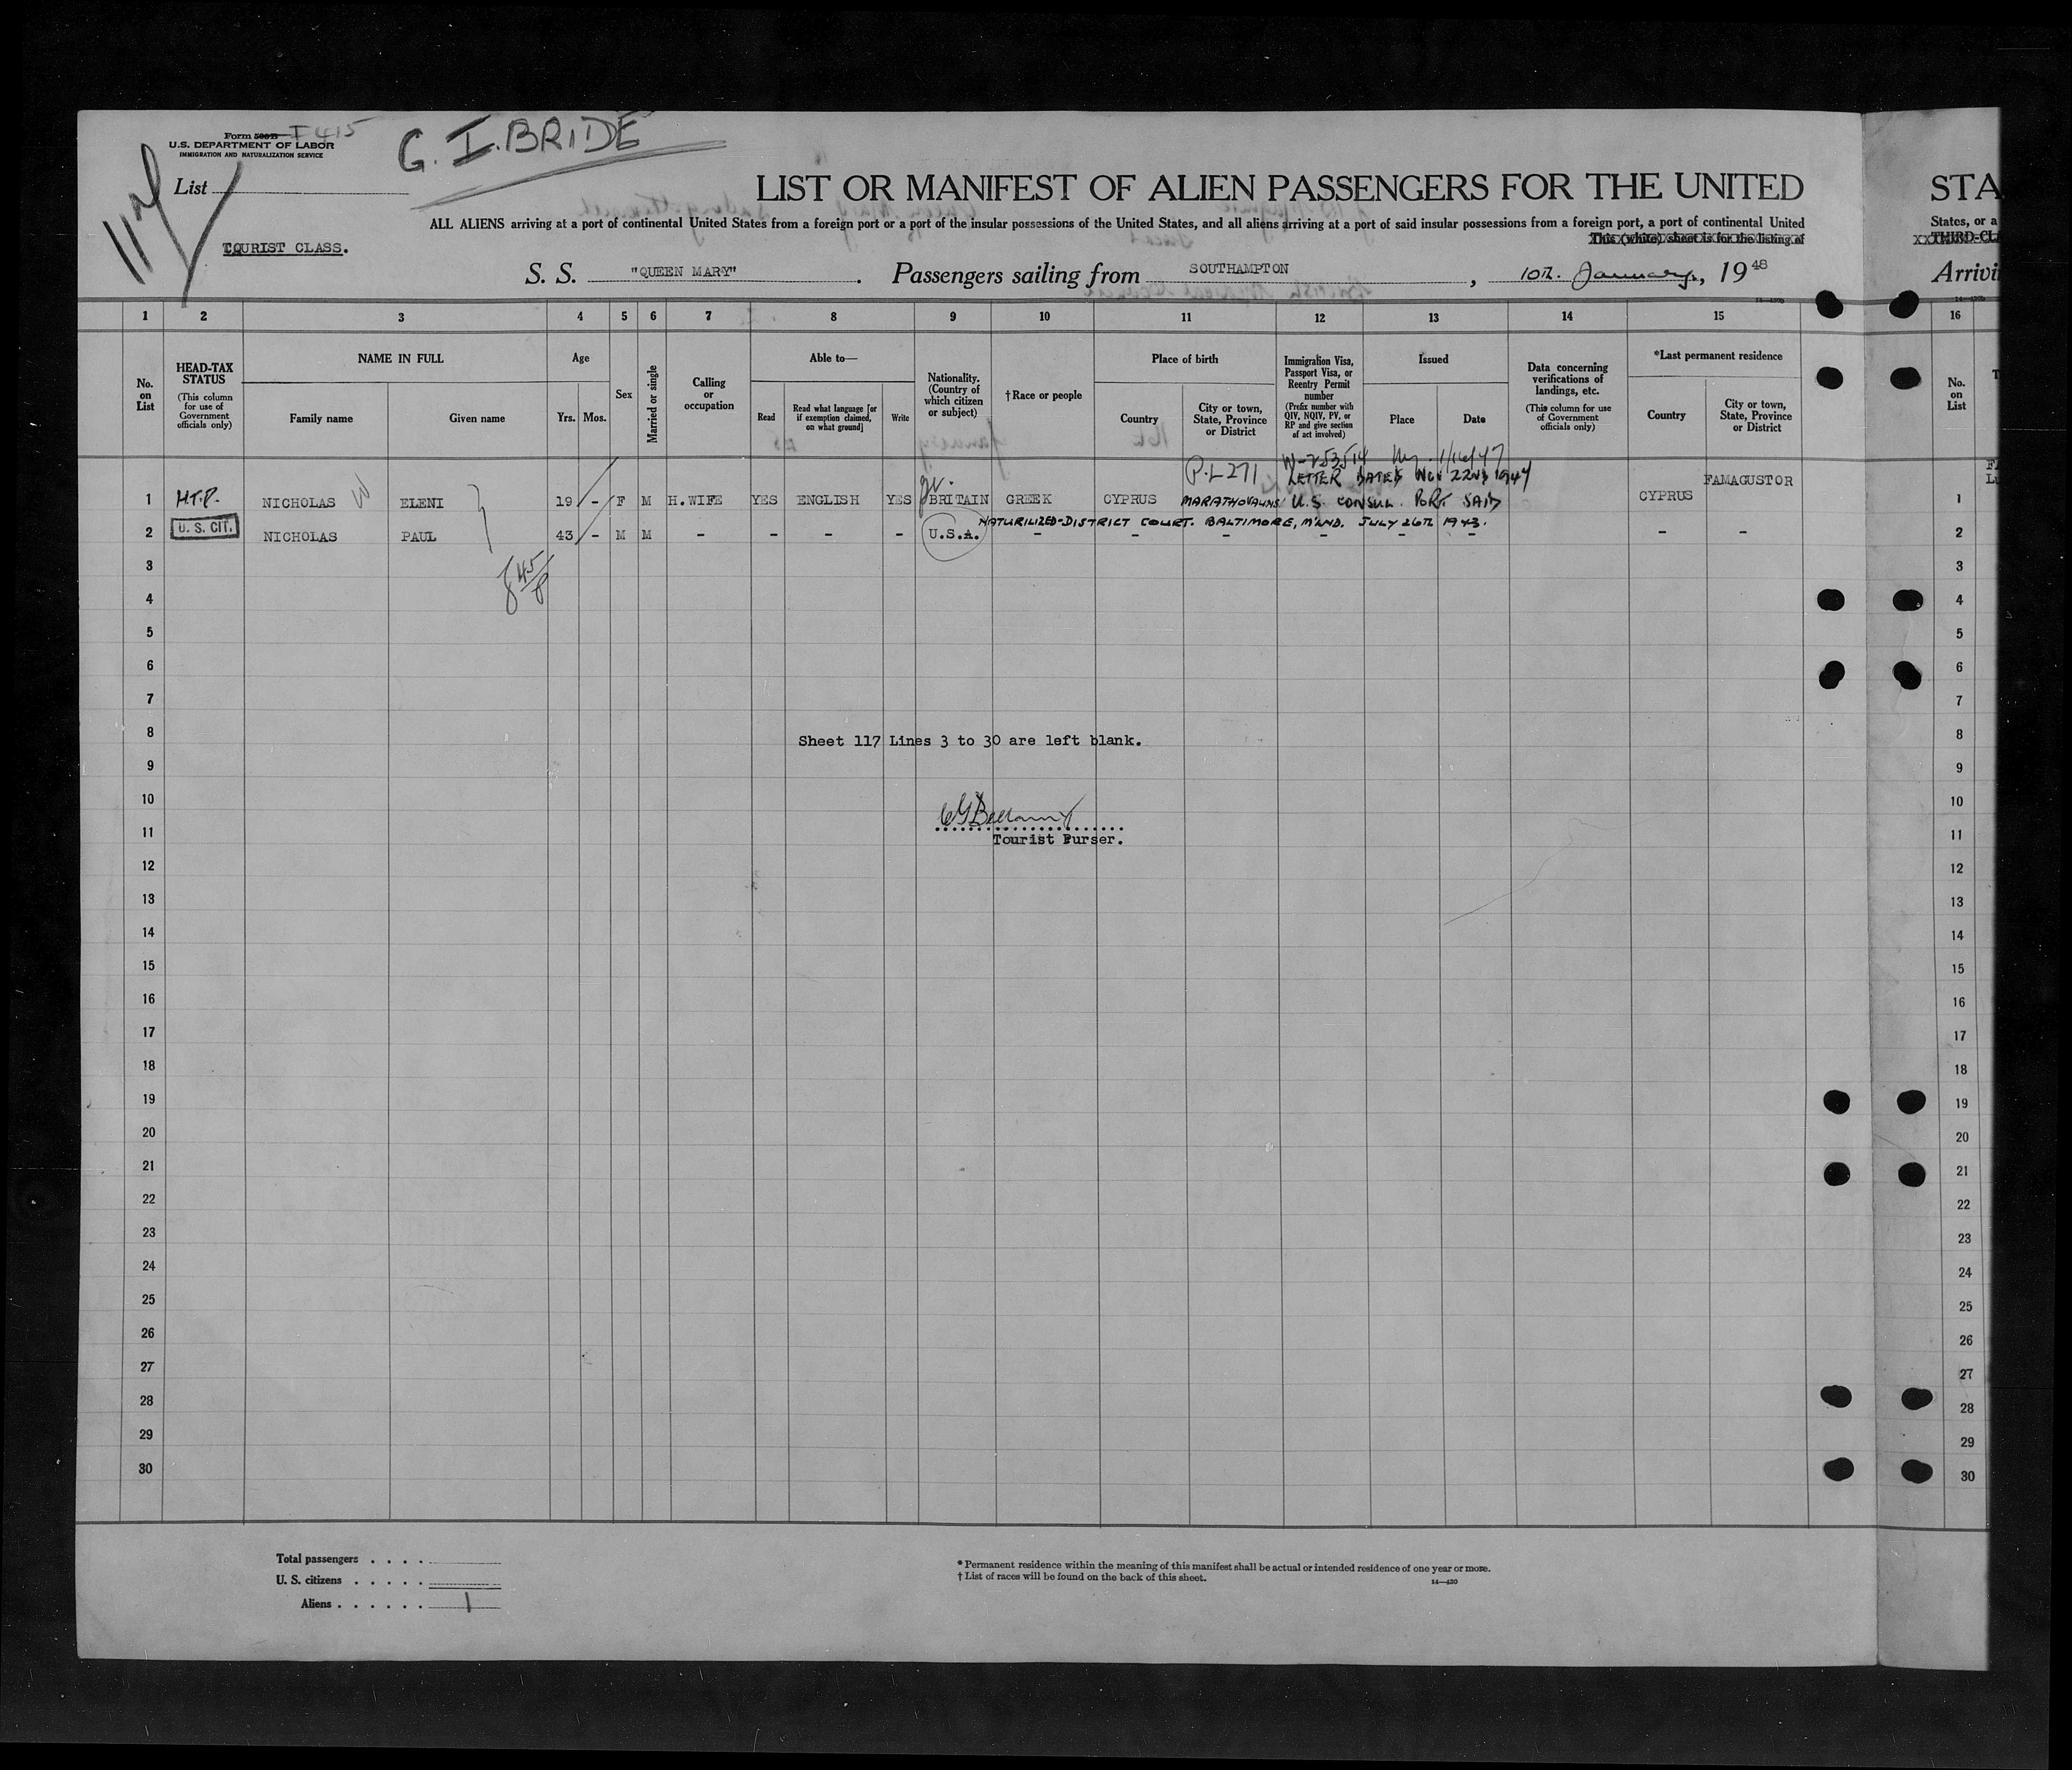 Form 500B I 415
U.S. DEPARTMENT OF LABOR
IMMIGRATION AND NATURALIZATION SERVICE
G. I. BRIDE
List
TOURIST CLASS.
LIST OR MANIFEST OF ALIEN PASSENGERS FOR THE UNITED
STA
ALL ALIENS arriving at a port of continental United States from a foreign port or a port of the insular possessions of the United States, and all aliens arriving at a port of said insular possessions from a foreign port, a port of continental United
States, or a
This (white) sheet is for the listing of
THIRD-CLA
S. S. "QUEEN MARY". Passengers sailing from SOUTHAMPTON, 10th. January, 19 48
Arrivi
1 2 3 4 5 6 7 8 9 10 11 12 13 14 15 16
No. on List
HEAD-TAX STATUS
(This column for use of Government officials only)
NAME IN FULL
Family name
Given name
Age
Yrs. Mos.
Sex
Married or single
Calling or occupation
Able to—
Read
Read what language [or if exemption claimed, on what ground]
Write
Nationality. (Country of which citizen or subject)
†Race or people
Place of birth
Country
City or town, State, Province or District
Immigration Visa, Passport Visa, or Reentry Permit number
(Prefix number with QIV, NQIV, PV, or RP and give section of act involved)
Issued
Place
Date
Data concerning verifications of landings, etc.
(This column for use of Government officials only)
*Last permanent residence
Country
City or town, State, Province or District
No. on List
P-L 271
LETTER DATED NOV 22ND 1947
1 H.T.P. NICHOLAS ELENI 19 - F M H.WIFE YES ENGLISH YES BRITAIN GREEK CYPRUS MARATHOVAUNS U.S. CONSUL. PORT SAID CYPRUS FAMAGUSTOR 1
NATURILIZED-DISTRICT COURT. BALTIMORE, M'LND. JULY 26TH 1943.
2 U. S. CIT. NICHOLAS PAUL 43 - M M - - - - U.S.A. - - - - - - - - 2
3 3
4 4
5 5
6 6
7 7
8 8
Sheet 117 Lines 3 to 30 are left blank.
9 9
10 10
11 11
Tourist Purser.
12 12
13 13
14 14
15 15
16 16
17 17
18 18
19 19
20 20
21 21
22 22
23 23
24 24
25 25
26 26
27 27
28 28
29 29
30 30
Total passengers
U. S. citizens
Aliens 1
* Permanent residence within the meaning of this manifest shall be actual or intended residence of one year or more.
† List of races will be found on the back of this sheet.
14—430